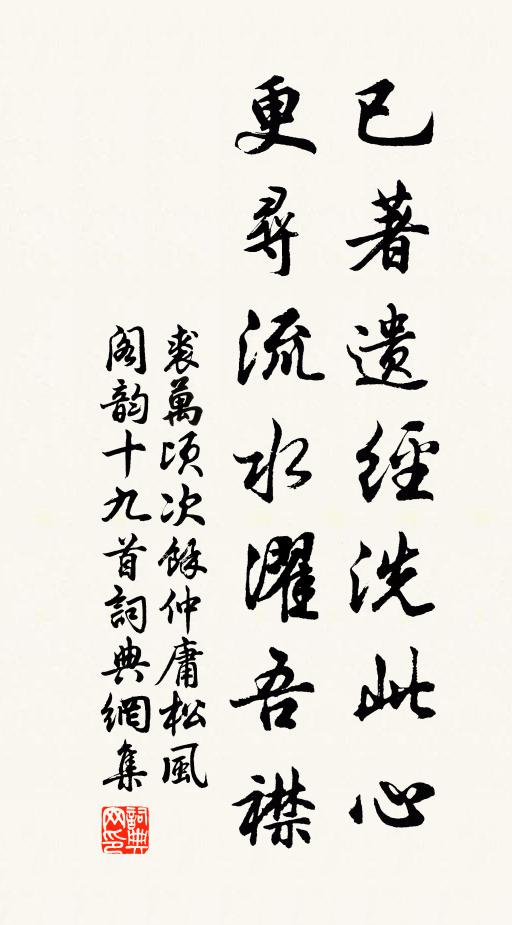 已著遺經洗此心
更尋流水濯吾襟
裘萬頃次餘仲庸松風
閣韵十九首詞典網集
詞典網印